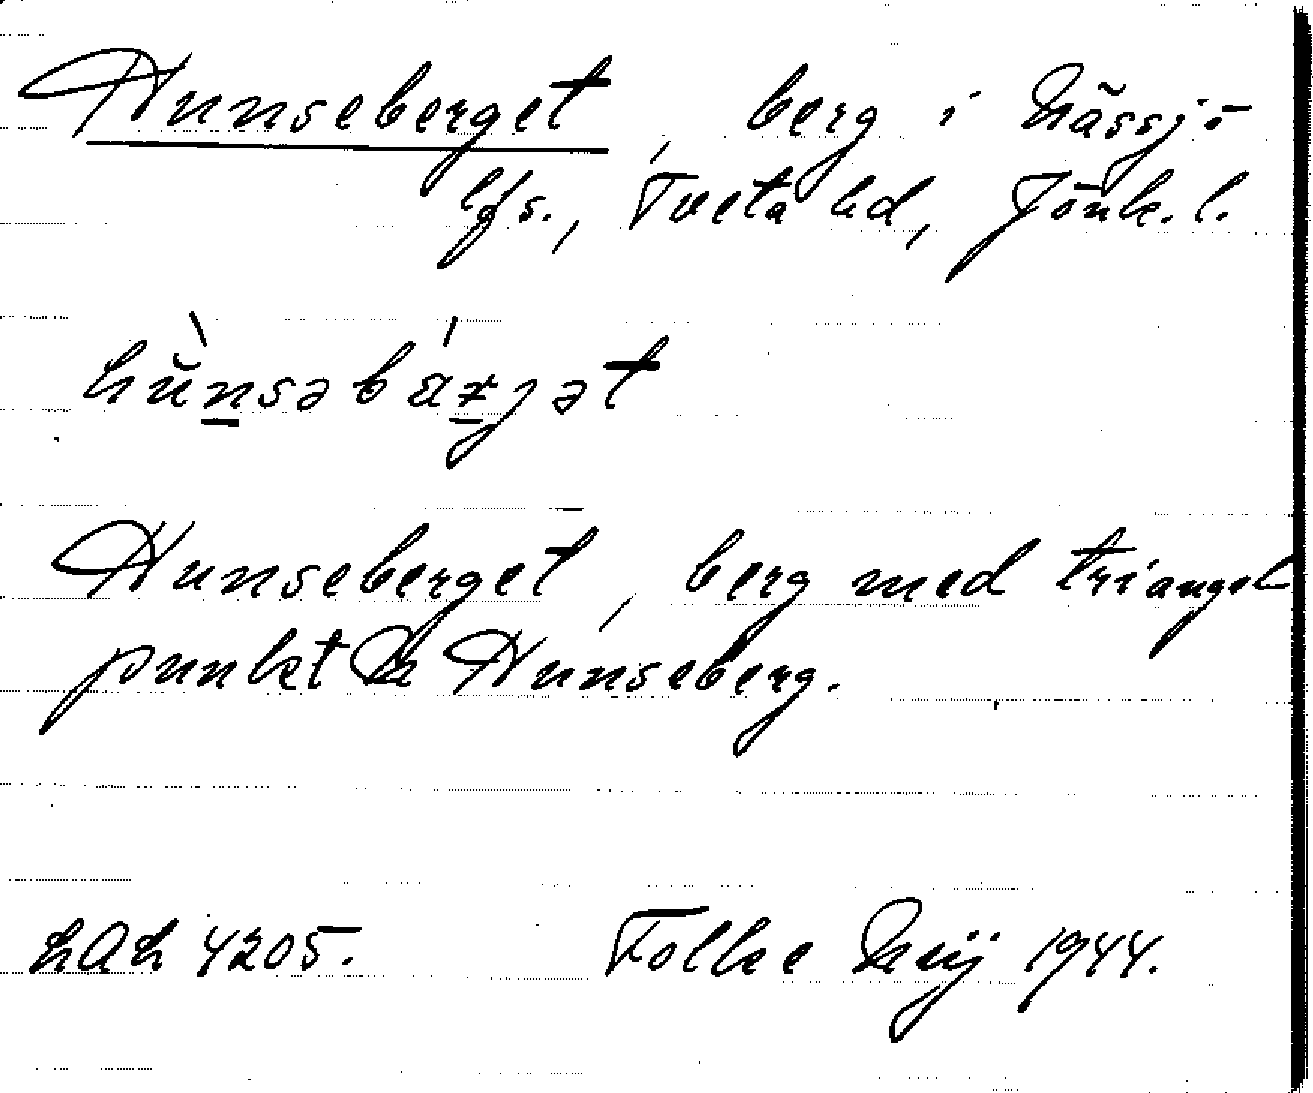 Hunseberget, berg i Nässjö
lfs., Tveta hd, Jönk. l.
Hunseberget, berg med triangel
punkt Hunseberg.
4205. Folke 1944.